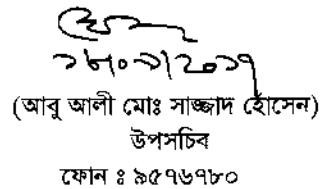 ১৮।০৯।২০১৭
(আবু আলী মোঃ সাজ্জাদ হোসেন)
উপসচিব
ফোন ঃ ৯৫৭৬৭৮০